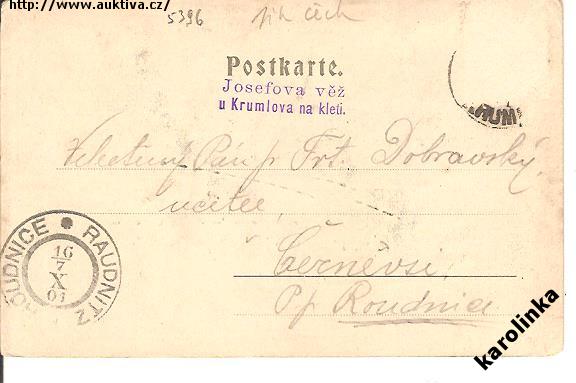 http://www.auktiva.cz/
5396 jih čech
Postkarte.
Josefova věž
u Krumlova na kleti.
KRUM
Velectěný Pán p. Frt. Dobravský,
učitel,
Černěvsi
Pp Roudnice
ROUDNICE RAUDNITZ
16
7
X
01
karolinka